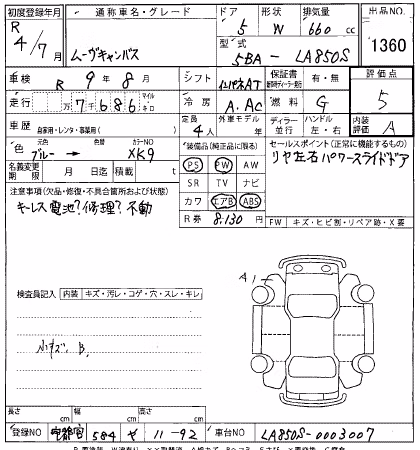 初度登録年月 通称車名・グレード ドア 形状 排気量 出品NO.
R 4/7月 ムーヴキャンバス 5 W 660 cc 1360
型式 5BA - LA850S
車検 R 9年 8月 シフト AT 保証書 有・無 評価点
走行 7 6 8 6 マイル キロ 冷房 A.AC 燃料 G 5
車歴 自家用・レンタ・事業用( ) 定員 4人 外車モデル 年 ディーラー 並行 ハンドル 左・右 内装評価 A
色 元色 色替 カラーNO
ブルー → XK9
装備品(純正品に限る) セールスポイント(正常に機能するもの)
PS PW AW リヤ左右パワースライドドア
名義変更期限 月 日迄 積載 t SR TV ナビ
注意事項(欠品・修復・不具合箇所および状態) カワ エアB ABS
キーレス電池?修理?不動 R券 8.130円 FW キズ・ヒビ割・リペア跡・X要
A1
検査員記入 内装 キズ・汚レ・コゲ・穴・スレ・キレ
小キズ. B.
長さ cm 幅 cm 高さ cm
登録NO 584 11-92 車台NO LA850S-0003007